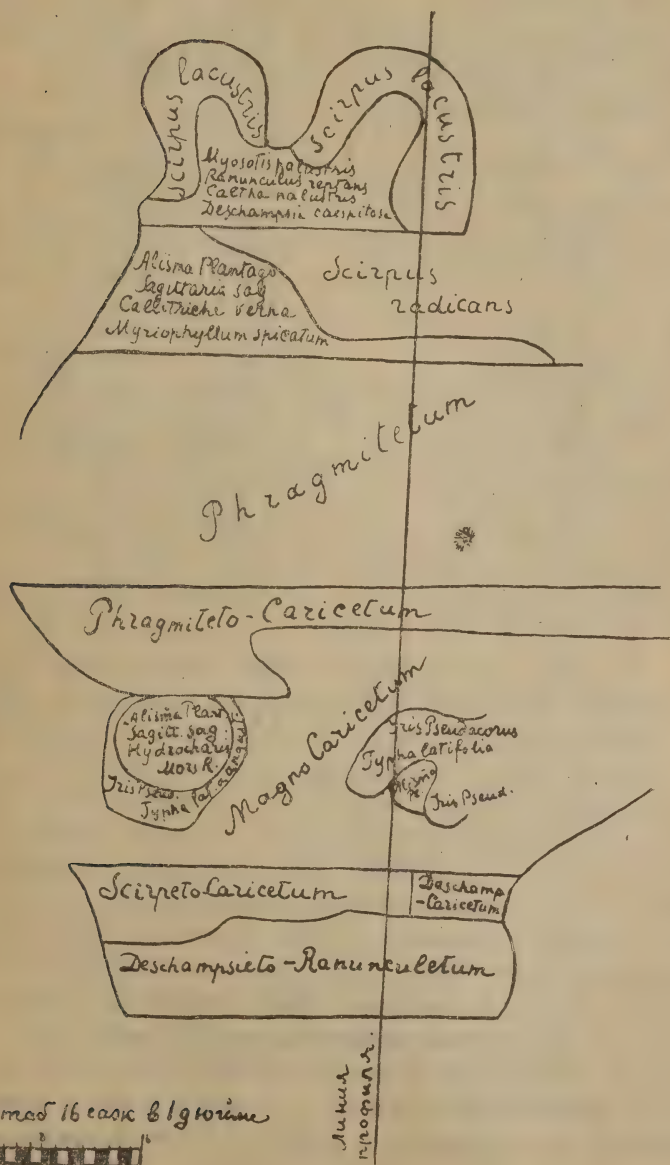 Scirpus lacustris
Scirpus lacustris
Myosotis palustris
Ranunculus reptans
Caltha palustris
Deschampsia caespitosa
Alisma Plantago
Sagittaria sag
Callitriche verna
Myriophyllum spicatum
Scirpus
radicans
Phragmitetum
Phragmiteto-Caricetum
MagnoCaricetum
Alisma Plant
Sagitt. sag.
Hydrocharis
Mors R.
Iris Pseud.
Typha lat. a. angust.
Iris Pseudacorus
Typha latifolia
Alisma
Pl.
Iris Pseud.
ScirpetoCaricetum
Deschamp
-Caricetum
Deschampsieto-Ranunculetum
Линия
профиля.
таб 16 саж в 1 дюйме
8 16